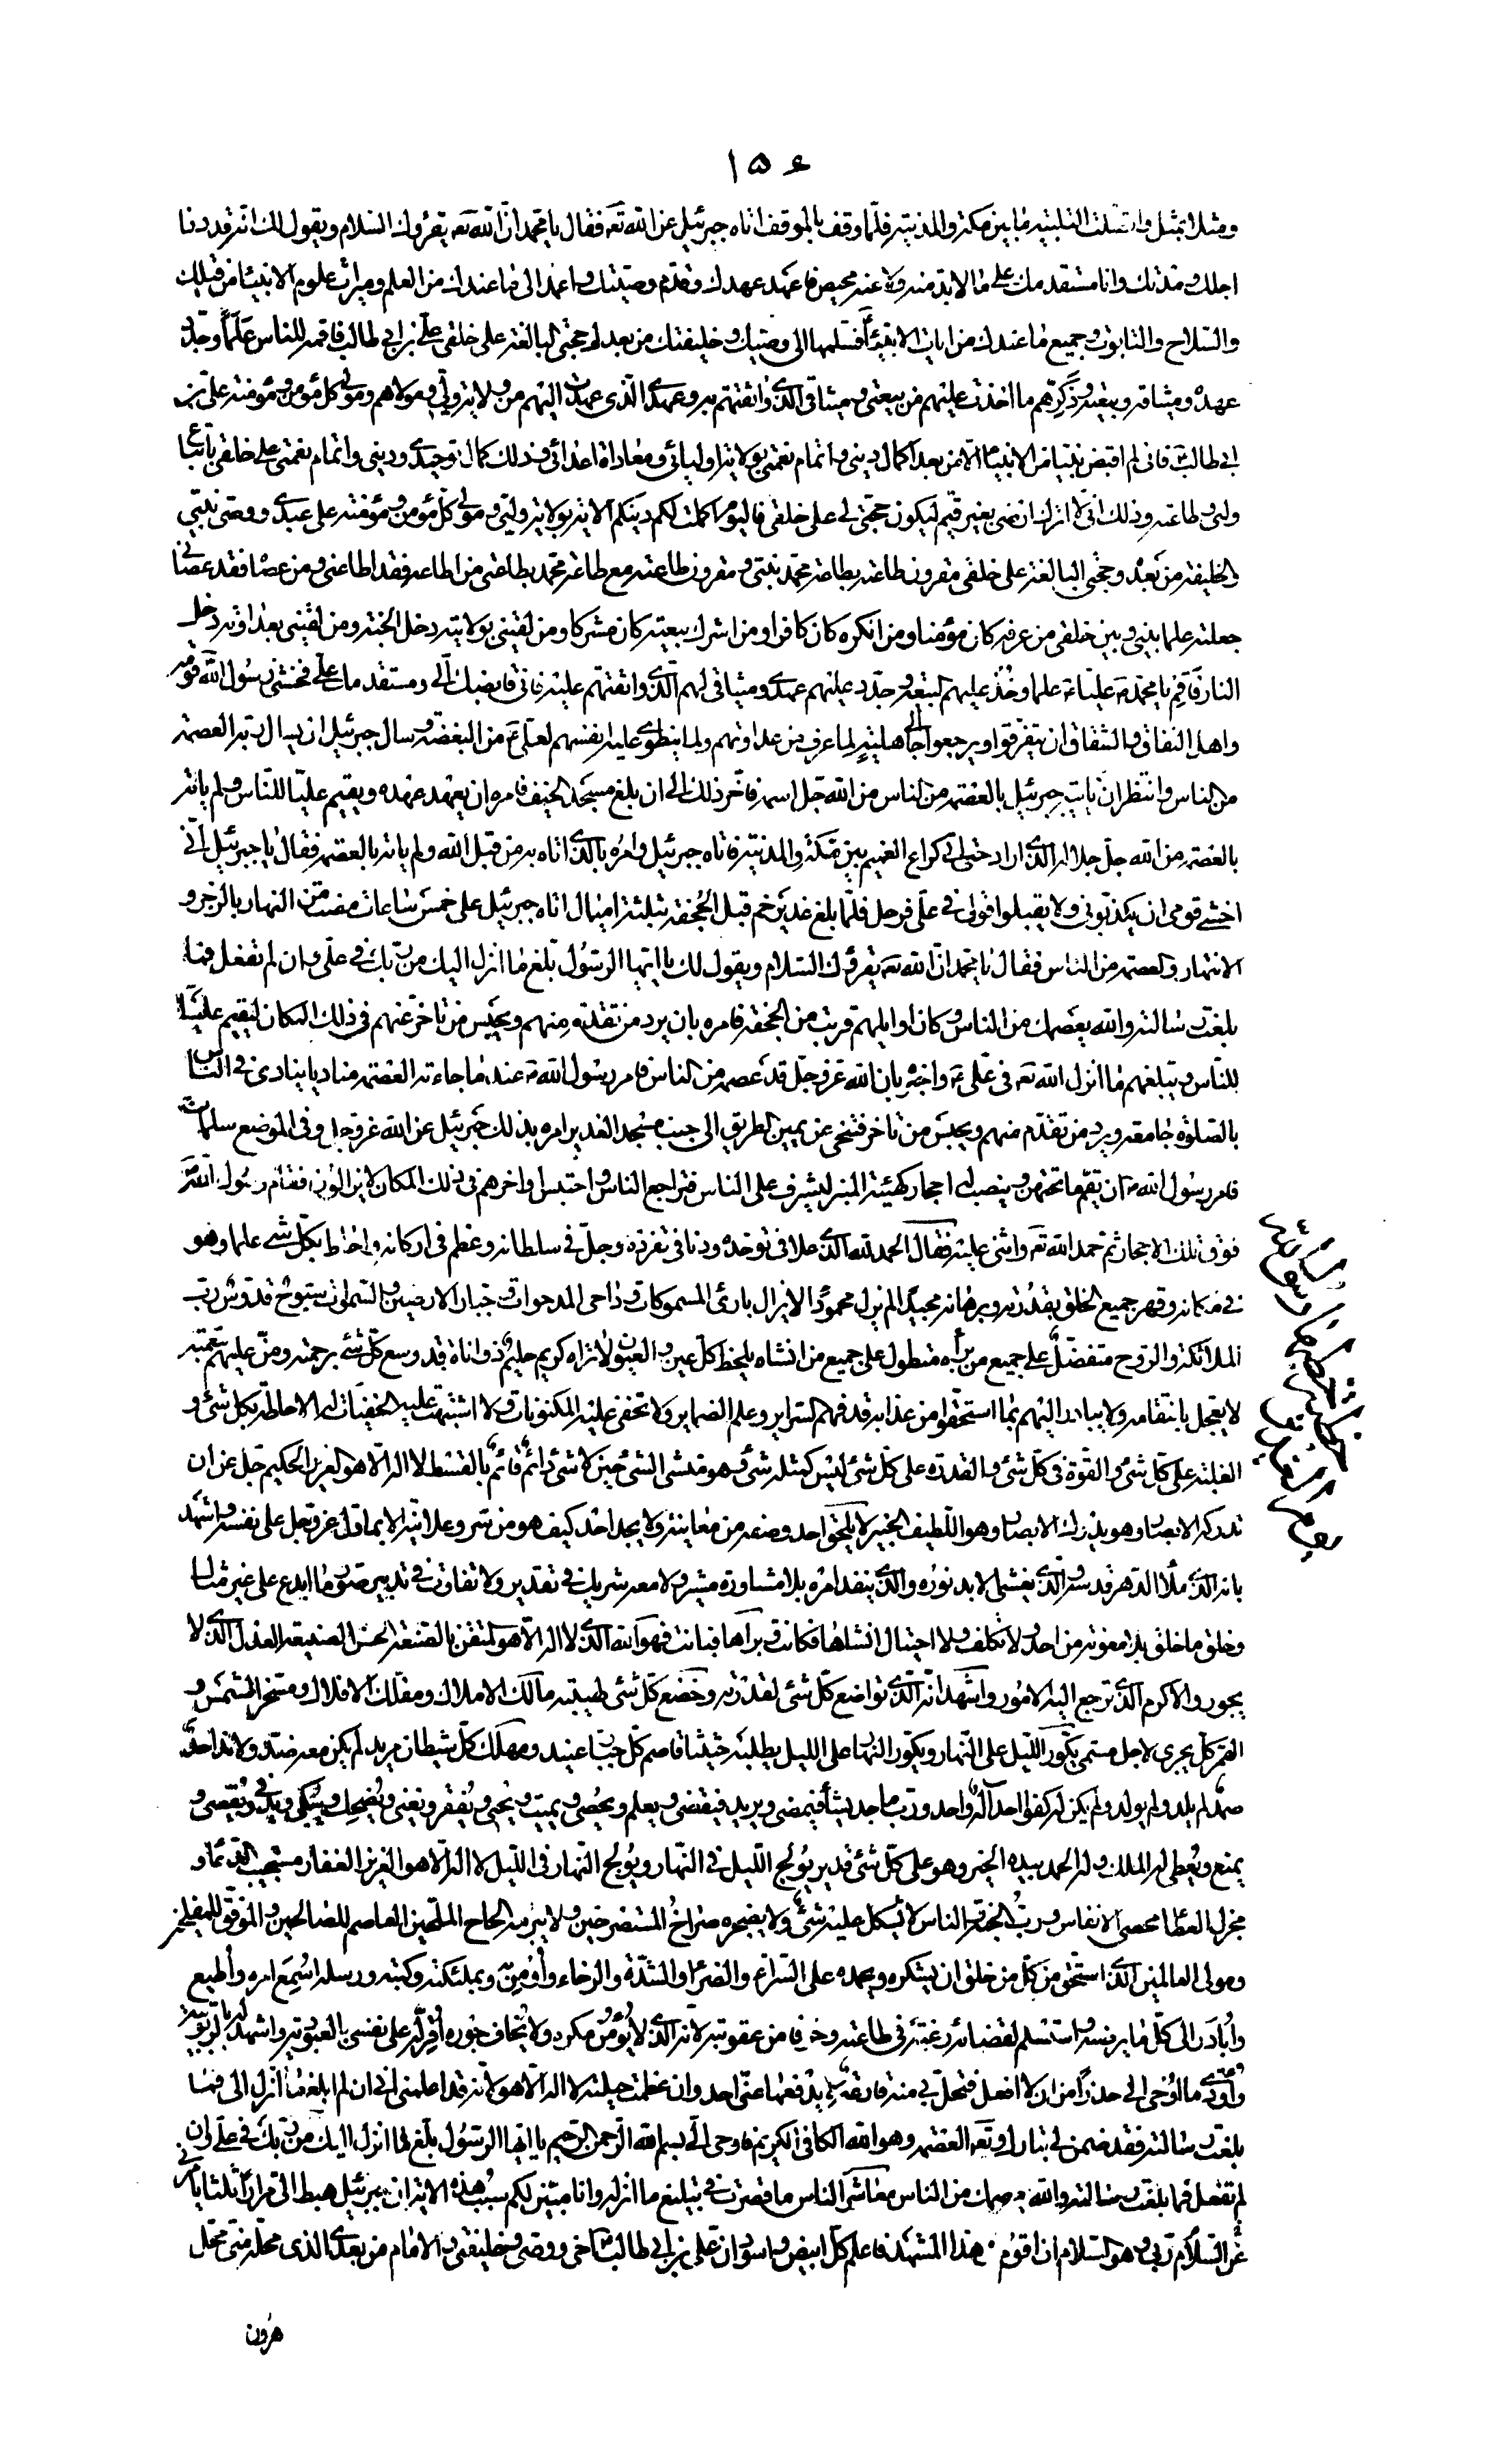 ١٥٤
ومثلا بمثل واتصلت التلبية ما بين مكة والمدينة فلما وقف بالموقف اتاه جبرئيل عن الله تعه فقال يا محمد ان الله تعه يقرؤك السلام ويقول لك انه قد دنا
اجلك ومدتك وانا مستقدمك على ما لا بد منه ولا عنه محيص فاعهد عهدك وقدم وصيتك واعمد الى ما عندك من العلم وميراث علوم الانبياء من قبلك
والسلاح والتابوت وجميع ما عندك من ايات الانبياء فسلمها الى وصيك وخليفتك من بعدك حجتى البالغة على خلقى على بن ابى طالب فاقمه للناس علما وجدد
عهده وميثاقه وبيعته وذكرهم ما اخذت عليهم من بيعتى وميثاقى الذى واثقتهم به وعهدى الذى عهدت اليهم من ولاية وليى ومولاهم ومولى كل مؤمن ومؤمنة على بن
ابى طالب فانى لم اقبض نبيا من الانبياء الا من بعد اكمال دينى واتمام نعمتى بولاية اوليائى ومعاداة اعدائى وذلك كمال توحيدى ودينى واتمام نعمتى على خلقى باتباع
وليى وطاعته وذلك انى لا اترك ارضى بغير قيم ليكون حجة لى على خلقى فاليوم اكملت لكم دينكم الاية بولاية وليى ومولى كل مؤمن ومؤمنة على عبدى ووصى نبيى
والخليفة من بعده وحجتى البالغة على خلقى مقرون طاعته بطاعة محمد نبيى ومقرون طاعته مع طاعة محمد بطاعتى من اطاعه فقد اطاعنى ومن عصاه فقد عصانى
جعلته علما بينى وبين خلقى من عرفه كان مؤمنا ومن انكره كان كافرا ومن اشرك ببيعته كان مشركا ومن لقينى بولايته دخل الجنة ومن لقينى بعداوته دخل
النار فاقم يا محمد عليا علما وخذ عليهم البيعة وجدد عليهم عهدى وميثاقى لهم الذى واثقتهم عليه فانى قابضك الى ومستقدمك على فخشى رسول الله قومه
واهل النفاق والشقاق ان يتفرقوا ويرجعوا الى جاهلية لما عرف من عداوتهم ولما ينطوى عليه انفسهم لعلى ع من البغضة وسال جبرئيل ان يسال ربه العصمة
من الناس وانتظر ان ياتيه جبرئيل بالعصمة من الناس من الله جل اسمه فاخر ذلك الى ان بلغ مسجد الخيف فامره ان يعهد عهده ويقيم عليا للناس ولم ياته
بالعصمة من الله جل جلاله الذى اراد حتى اتى كراع الغميم بين مكة والمدينة فاتاه جبرئيل وامره بالذى اتاه به من قبل الله ولم ياته بالعصمة فقال يا جبرئيل انى
اخشى قومى ان يكذبونى ولا يقبلوا قولى فى على فرحل فلما بلغ غدير خم قبل الجحفة بثلثة اميال اتاه جبرئيل على خمس ساعات مضت من النهار بالزجر و
الانتهار والعصمة من الناس فقال يا محمد ان الله تعه يقرؤك السلام ويقول لك يا ايها الرسول بلغ ما انزل اليك من ربك فى على وان لم تفعل فما
بلغت رسالته والله يعصمك من الناس وكان اوايلهم قريب من الجحفة فامره بان يرد من تقدم منهم ويحبس من تاخر عنهم فى ذلك المكان ليقيم عليا
للناس ويبلغهم ما انزل الله تعه فى على ع واخبره بان الله عز وجل قد عصمه من الناس فامر رسول الله ص عند ما جاءته العصمة مناديا ينادى فى الناس
بالصلوة جامعة ويرد من تقدم منهم ويحبس من تاخر فتنحى عن يمين الطريق الى جنب مسجد الغدير امره بذلك جبرئيل عن الله عز وجل وفى الموضع سلمات
فامر رسول الله ص ان يقم ما تحتهن وينصب له احجار كهيئة المنبر ليشرف على الناس فتراجع الناس واحتبس اواخرهم فى ذلك المكان لا يزالون فقام رسول الله
فوق تلك الاحجار ثم حمد الله تعه واثنى عليه فقال الحمد لله الذى علا فى توحده ودنا فى تفرده وجل فى سلطانه وعظم فى اركانه واحاط بكل شئ علما وهو
فى مكانه وقهر جميع الخلق بقدرته وبرهانه مجيدا لم يزل محمودا لا يزال بارئ المسموكات وداحى المدحوات وجبار الارضين والسموات سبوح قدوس رب
الملائكة والروح متفضل على جميع من براه متطول على جميع من انشاه يلحظ كل عين والعيون لا تراه كريم حليم ذو اناة قد وسع كل شئ برحمته ومن عليهم بنعمته
لا يعجل بانتقامه ولا يبادر اليهم بما استحقوا من عذابه قد فهم السراير وعلم الضماير ولا تخفى عليه المكنونات ولا اشتبهت عليه الخفيات له الاحاطة بكل شئ و
الغلبة على كل شئ والقوة فى كل شئ والقدرة على كل شئ ليس كمثله شئ وهو منشى الشئ حين لا شئ دائم قائم بالقسط لا اله الا هو العزيز الحكيم جل عن ان
تدركه الابصار وهو يدرك الابصار وهو اللطيف الخبير لا يلحق احد وصفه من معاينة ولا يجد احد كيف هو من سر وعلانية الا بما دل عز وجل على نفسه واشهد
بانه الذى ملا الدهر قدسه والذى يغشى الابد نوره والذى ينفذ امره بلا مشاورة مشير ولا معه شريك فى تقدير ولا تفاوت فى تدبير صور ما ابدع على غير مثال
وخلق ما خلق بلا معونة من احد ولا تكلف ولا احتيال انشاها فكانت وبراها فبانت فهو الله الذى لا اله الا هو المتقن الصنعة الحسن الصنيعة العدل الذى لا
يجور والاكرم الذى ترجع اليه الامور واشهد انه الذى تواضع كل شئ لقدرته وخضع كل شئ لهيبته مالك الاملاك ومفلك الافلاك ومسخر الشمس و
القمر كل يجرى لاجل مسمى يكور الليل على النهار ويكور النهار على الليل يطلبه حثيثا قاصم كل جبار عنيد ومهلك كل شيطان مريد لم يكن معه ضد ولا ند احد
صمد لم يلد ولم يولد ولم يكن له كفوا احد اله واحد ورب ماجد يشأ فيمضى ويريد فيقضى ويعلم ويحصى ويميت ويحيى ويفقر ويغنى ويضحك ويبكى ويدنى ويقصى و
يمنع ويعطى له الملك وله الحمد بيده الخير وهو على كل شئ قدير يولج الليل فى النهار ويولج النهار فى الليل لا اله الا هو العزيز الغفار مستجيب الدعاء و
مجزل العطا محصى الانفاس ورب الجنة والناس لا يشكل عليه شئ ولا يضجره صراخ المستصرخين ولا يبرمه الحاح الملحين العاصم للصالحين والموفق للمفلحين
ومولى العالمين الذى استحق من كل من خلق ان يشكره ويحمده على السراء والضراء والشدة والرخاء واومن به وبملئكته وكتبه ورسله اسمع امره واطيع
وابادر الى كل ما يرضيه واستسلم لقضائه رغبة فى طاعته وخوفا من عقوبته لانه الذى لا يؤمن مكره ولا يخاف جوره اقر له على نفسى بالعبودية واشهد له بالربوبية
واودى ما اوحى الى حذرا من ان لا افعل فتحل بى منه قارعة لا يدفعها عنى احد وان عظمت حيلته لا اله الا هو لانه قد اعلمنى انى ان لم ابلغ ما انزل الى فما
بلغت رسالته فقد ضمن لى تبارك وتعه العصمة وهو الله الكافى الكريم فاوحى الى بسم الله الرحمن الرحيم يا ايها الرسول بلغ ما انزل اليك من ربك فى على وان
لم تفعل فما بلغت رسالته والله يعصمك من الناس معاشر الناس ما قصرت فى تبليغ ما انزله وانا مبين لكم سبب هذه الاية ان جبرئيل هبط الى مرارا ثلثا يامرنى
عن السلام ربى وهو السلام ان اقوم فى هذا المشهد فاعلم كل ابيض واسود ان على بن ابى طالب اخى ووصيى وخليفتى والامام من بعدى الذى محله منى محل
هرون
خطبة
يوم الغدير